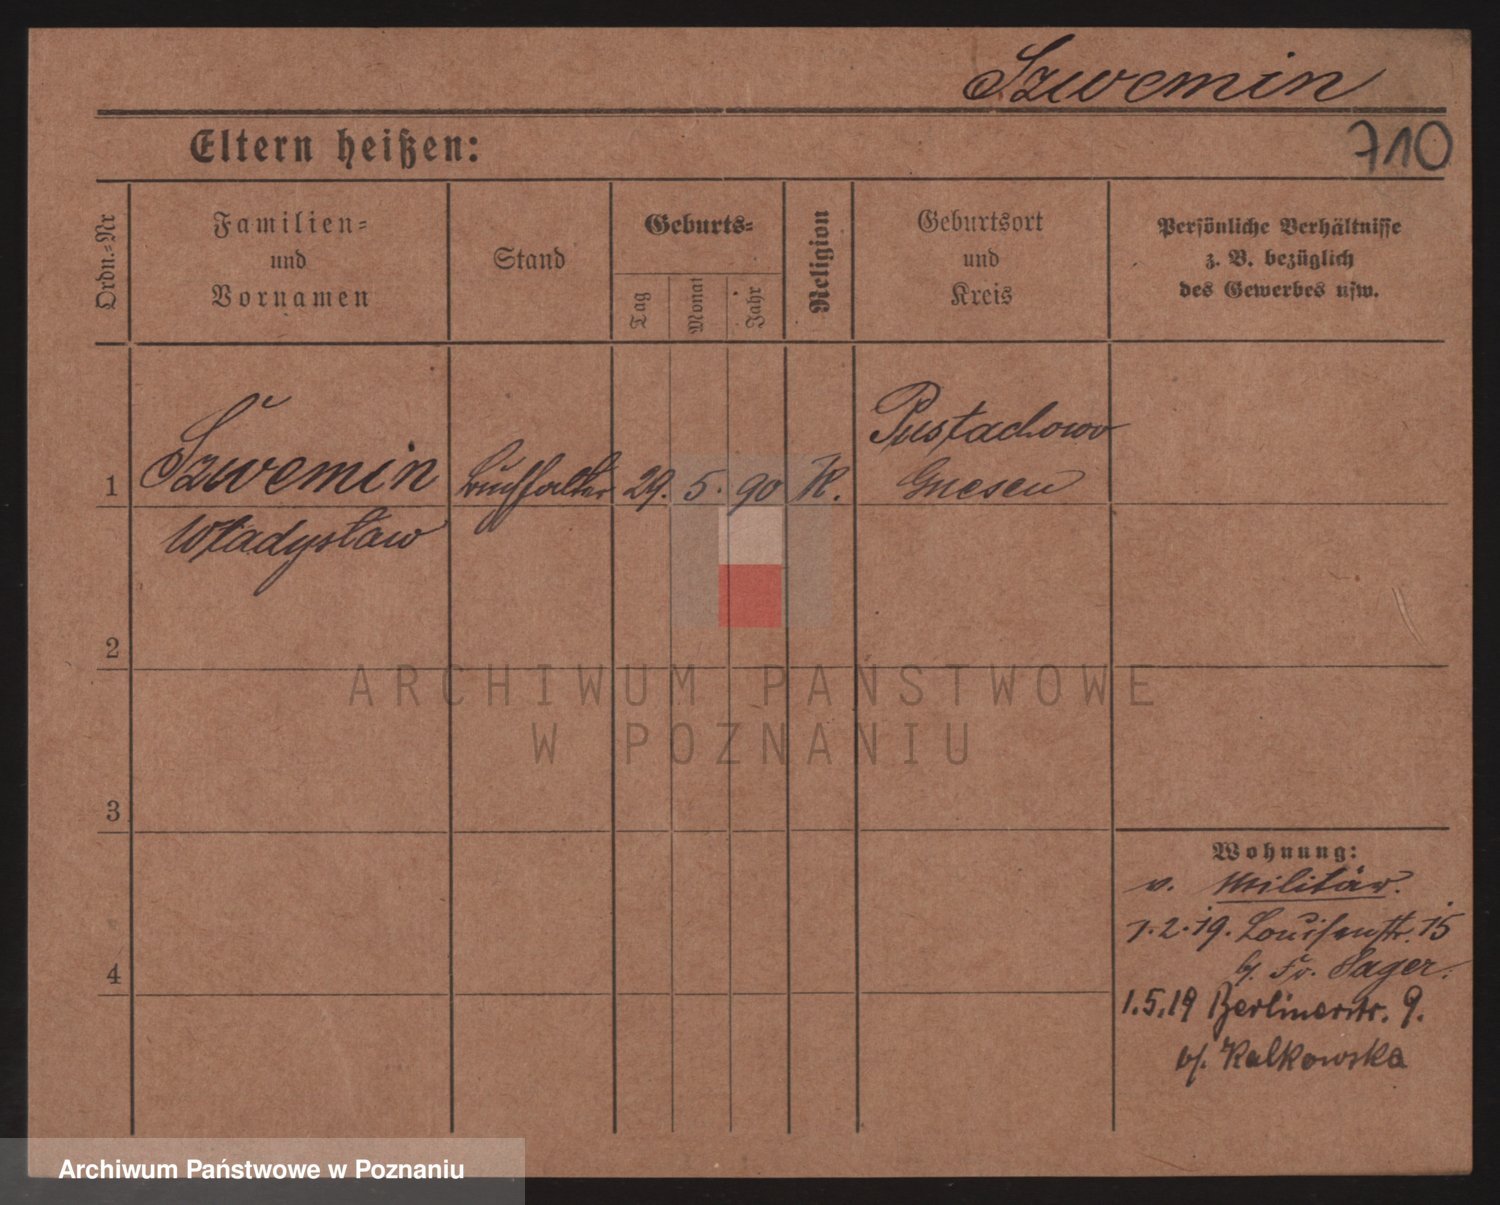 Szwemin
Eltern heißen:
710
Ordn.-Nr
Familien-
und
Vornamen
Stand
Geburts-
Tag
Monat
Jahr
Religion
Geburtsort
und
Kreis
Persönliche Verhältnisse
z. B. bezüglich
des Gewerbes usw.
1 Szwemin Buchhalter 29. 5. 90 K. Pustachowo
Gnesen
Władysław
2
3
4
Wohnung:
v. Militär.
1.2.19. Louisenstr. 15
b/. Fr. Sager.
1.5.19 Berlinerstr. 9.
b/. Kalkowska
ARCHIWUM PAŃSTWOWE
W POZNANIU
Archiwum Państwowe w Poznaniu